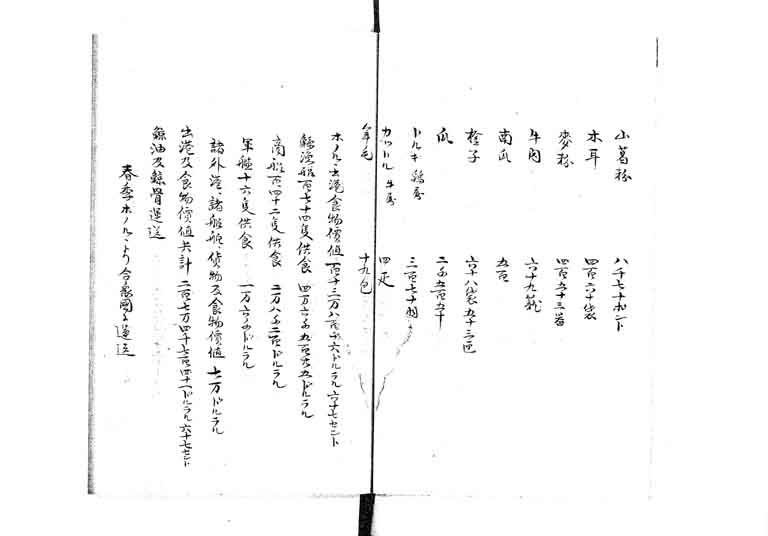 山葛粉 八千七十ポント
木耳 四百六十袋
麥粉 四百五十三箇
牛肉 六十九箱
南瓜 五百
橙子 六十八袋五十三包
瓜 二千五百五十
トルキ 鷄屬 三百七十羽
カットル 牛屬 四疋
羊毛 十九包
ホノルヽ出港食物價値 百十三万八百六ドルラル六十七セント
鯨漁船百七十四隻供食 四万六千九百七五ドルラル
商船百四十二隻供食 二万八千二百ドルラル
軍艦十六隻供食 一万六千ドルラル
諸外港、諸船舶、貨物及食物價値 七万ドルラル
出港及食物價値共計 二百七万四千七百四十一ドルラル六十七セント
鯨油及鯨骨運送
春季ホノルヽより合衆國に運送